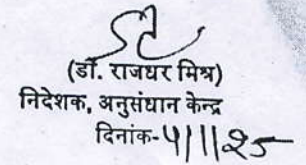 (डॉ. राजधर मिश्र)
निदेशक, अनुसंधान केन्द्र
दिनांक-4/11/25